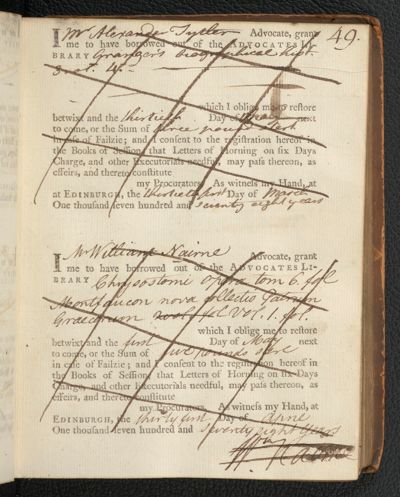 49.
I Mr Alexander Tytler Advocate, grant
me to have borrowed out of the ADVOCATES LI-
BRARY Granger's biographical hist.
3 vol. 4to.
which I oblige me to restore
betwixt and the thirtieth Day of next
to come, or the Sum of three pounds
in case of Failzie; and I consent to the registration hereof in
the Books of Session, that Letters of Horning on six Days
Charge, and other Executorials needful, may pass thereon, as
effeirs, and thereto constitute
my Procurators. As witness my Hand, at
at EDINBURGH, the Day of March
One thousand seven hundred and seventy eight years
I Mr William Nairne Advocate, grant
me to have borrowed out of the ADVOCATES LI-
BRARY Chrysostomi opera tom 6. fol
Montfaucon nova collectio Patrum
Graecorum vol. 1. fol.
which I oblige me to restore
betwixt and the first Day of May next
to come, or the Sum of two pounds
in case of Failzie; and I consent to the registration hereof in
the Books of Session, that Letters of Horning on six Days
Charge, and other Executorials needful, may pass thereon, as
effeirs, and thereto constitute
my Procurators. As witness my Hand, at
EDINBURGH, the thirty first Day of
One thousand seven hundred and seventy eight years
Wm Nairne